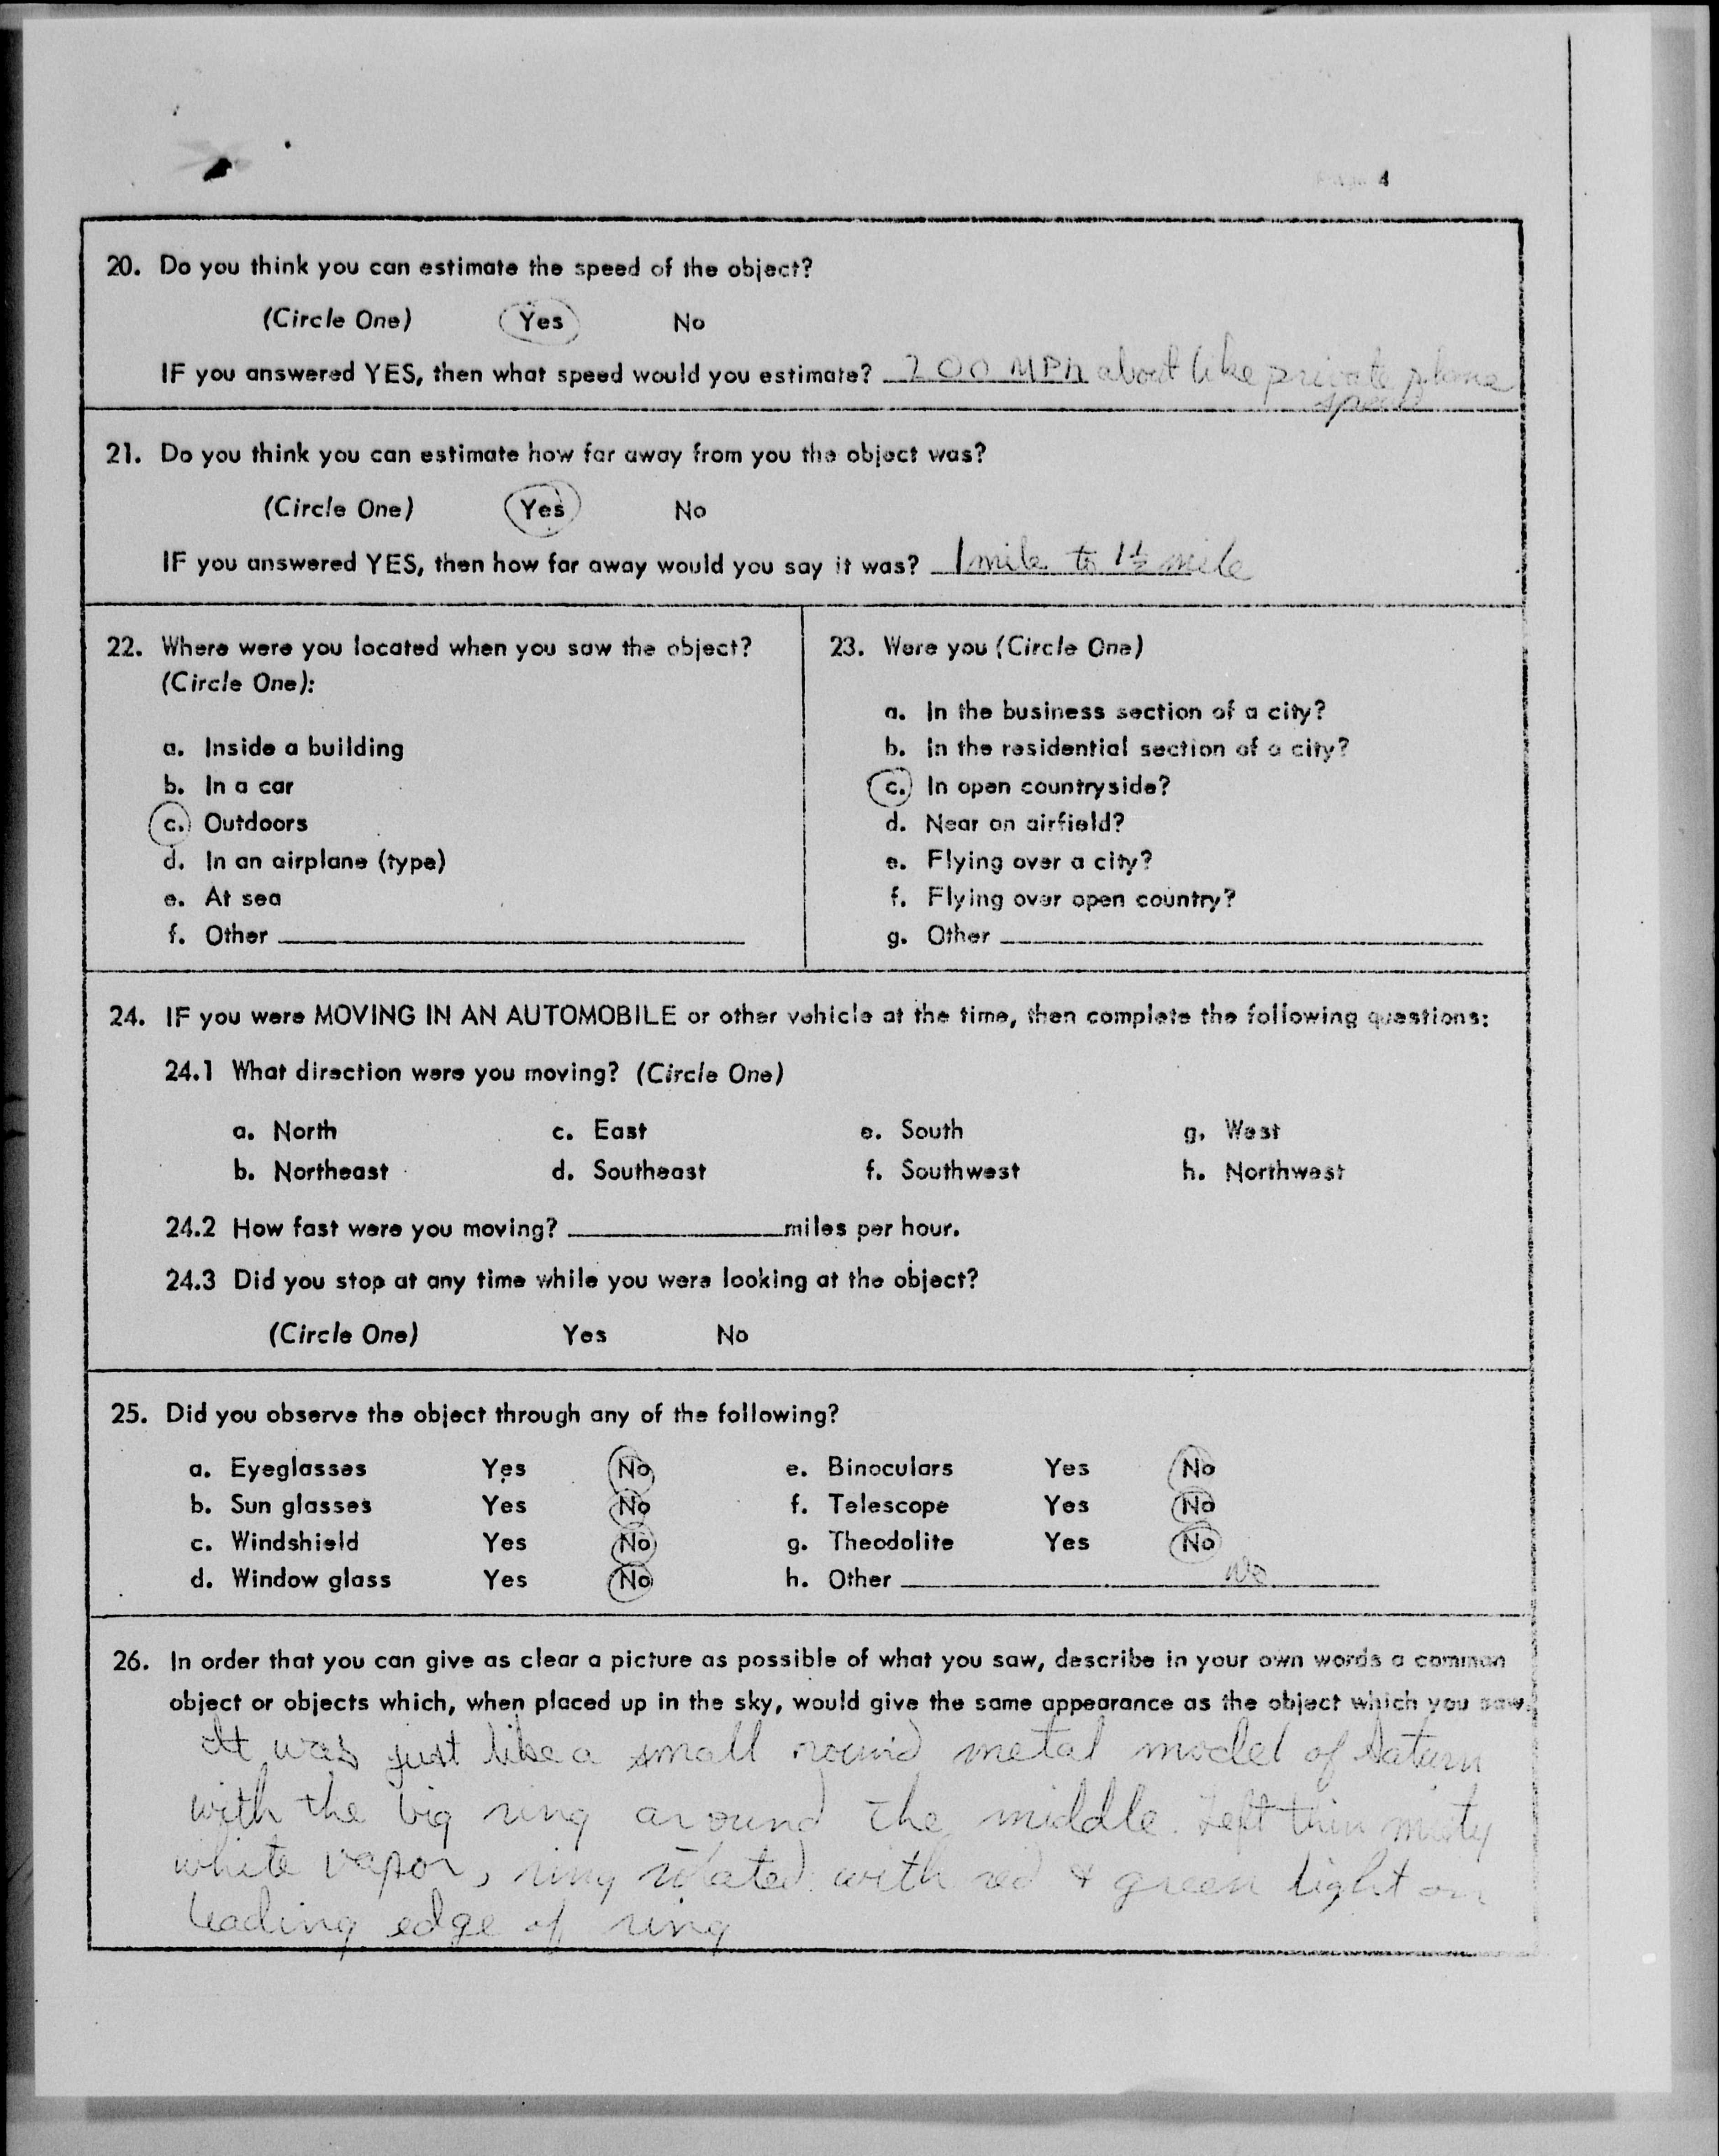 Page 4
20. Do you think you can estimate the speed of the object?
(Circle One) Yes No
IF you answered YES, then what speed would you estimate? 200 MPH about like private plane
speed
21. Do you think you can estimate how far away from you the object was?
(Circle One) Yes No
IF you answered YES, then how far away would you say it was? 1 mile to 1½ mile
22. Where were you located when you saw the object?
(Circle One):
a. Inside a building
b. In a car
c. Outdoors
d. In an airplane (type)
e. At sea
f. Other
23. Were you (Circle One)
a. In the business section of a city?
b. In the residential section of a city?
c. In open countryside?
d. Near an airfield?
e. Flying over a city?
f. Flying over open country?
g. Other
24. IF you were MOVING IN AN AUTOMOBILE or other vehicle at the time, then complete the following questions:
24.1 What direction were you moving? (Circle One)
a. North c. East e. South g. West
b. Northeast d. Southeast f. Southwest h. Northwest
24.2 How fast were you moving? miles per hour.
24.3 Did you stop at any time while you were looking at the object?
(Circle One) Yes No
25. Did you observe the object through any of the following?
a. Eyeglasses Yes No e. Binoculars Yes No
b. Sun glasses Yes No f. Telescope Yes No
c. Windshield Yes No g. Theodolite Yes No
d. Window glass Yes No h. Other No
26. In order that you can give as clear a picture as possible of what you saw, describe in your own words a common
object or objects which, when placed up in the sky, would give the same appearance as the object which you saw.
It was just like a small round metal model of Saturn
with the big ring around the middle. Left thin misty
white vapor, ring rotated with red & green light on
leading edge of ring